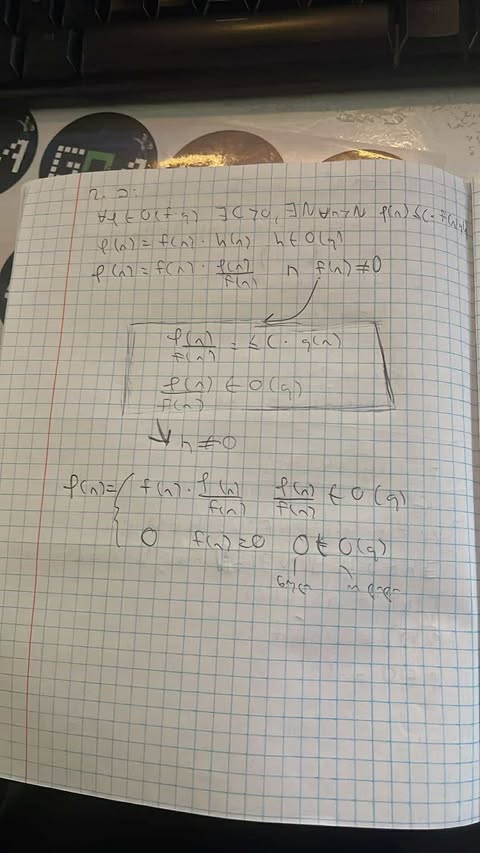 2. ⊃:
∀ℓ ∈ O(f·g) ∃C>0, ∃N ∀n>N ℓ(n) ≤ C·f(n)g(n)
ℓ(n) = f(n) · h(n) h ∈ O(g)
ℓ(n) = f(n) · ℓ(n)/f(n) n f(n) ≠ 0
ℓ(n)/f(n) = ≤ C · g(n)
ℓ(n)/f(n) ∈ O(g)
↓ n ≠ 0
ℓ(n) = { f(n) · ℓ(n)/f(n) ℓ(n)/f(n) ∈ O(g)
0 f(n) = 0 0 ∈ O(g)